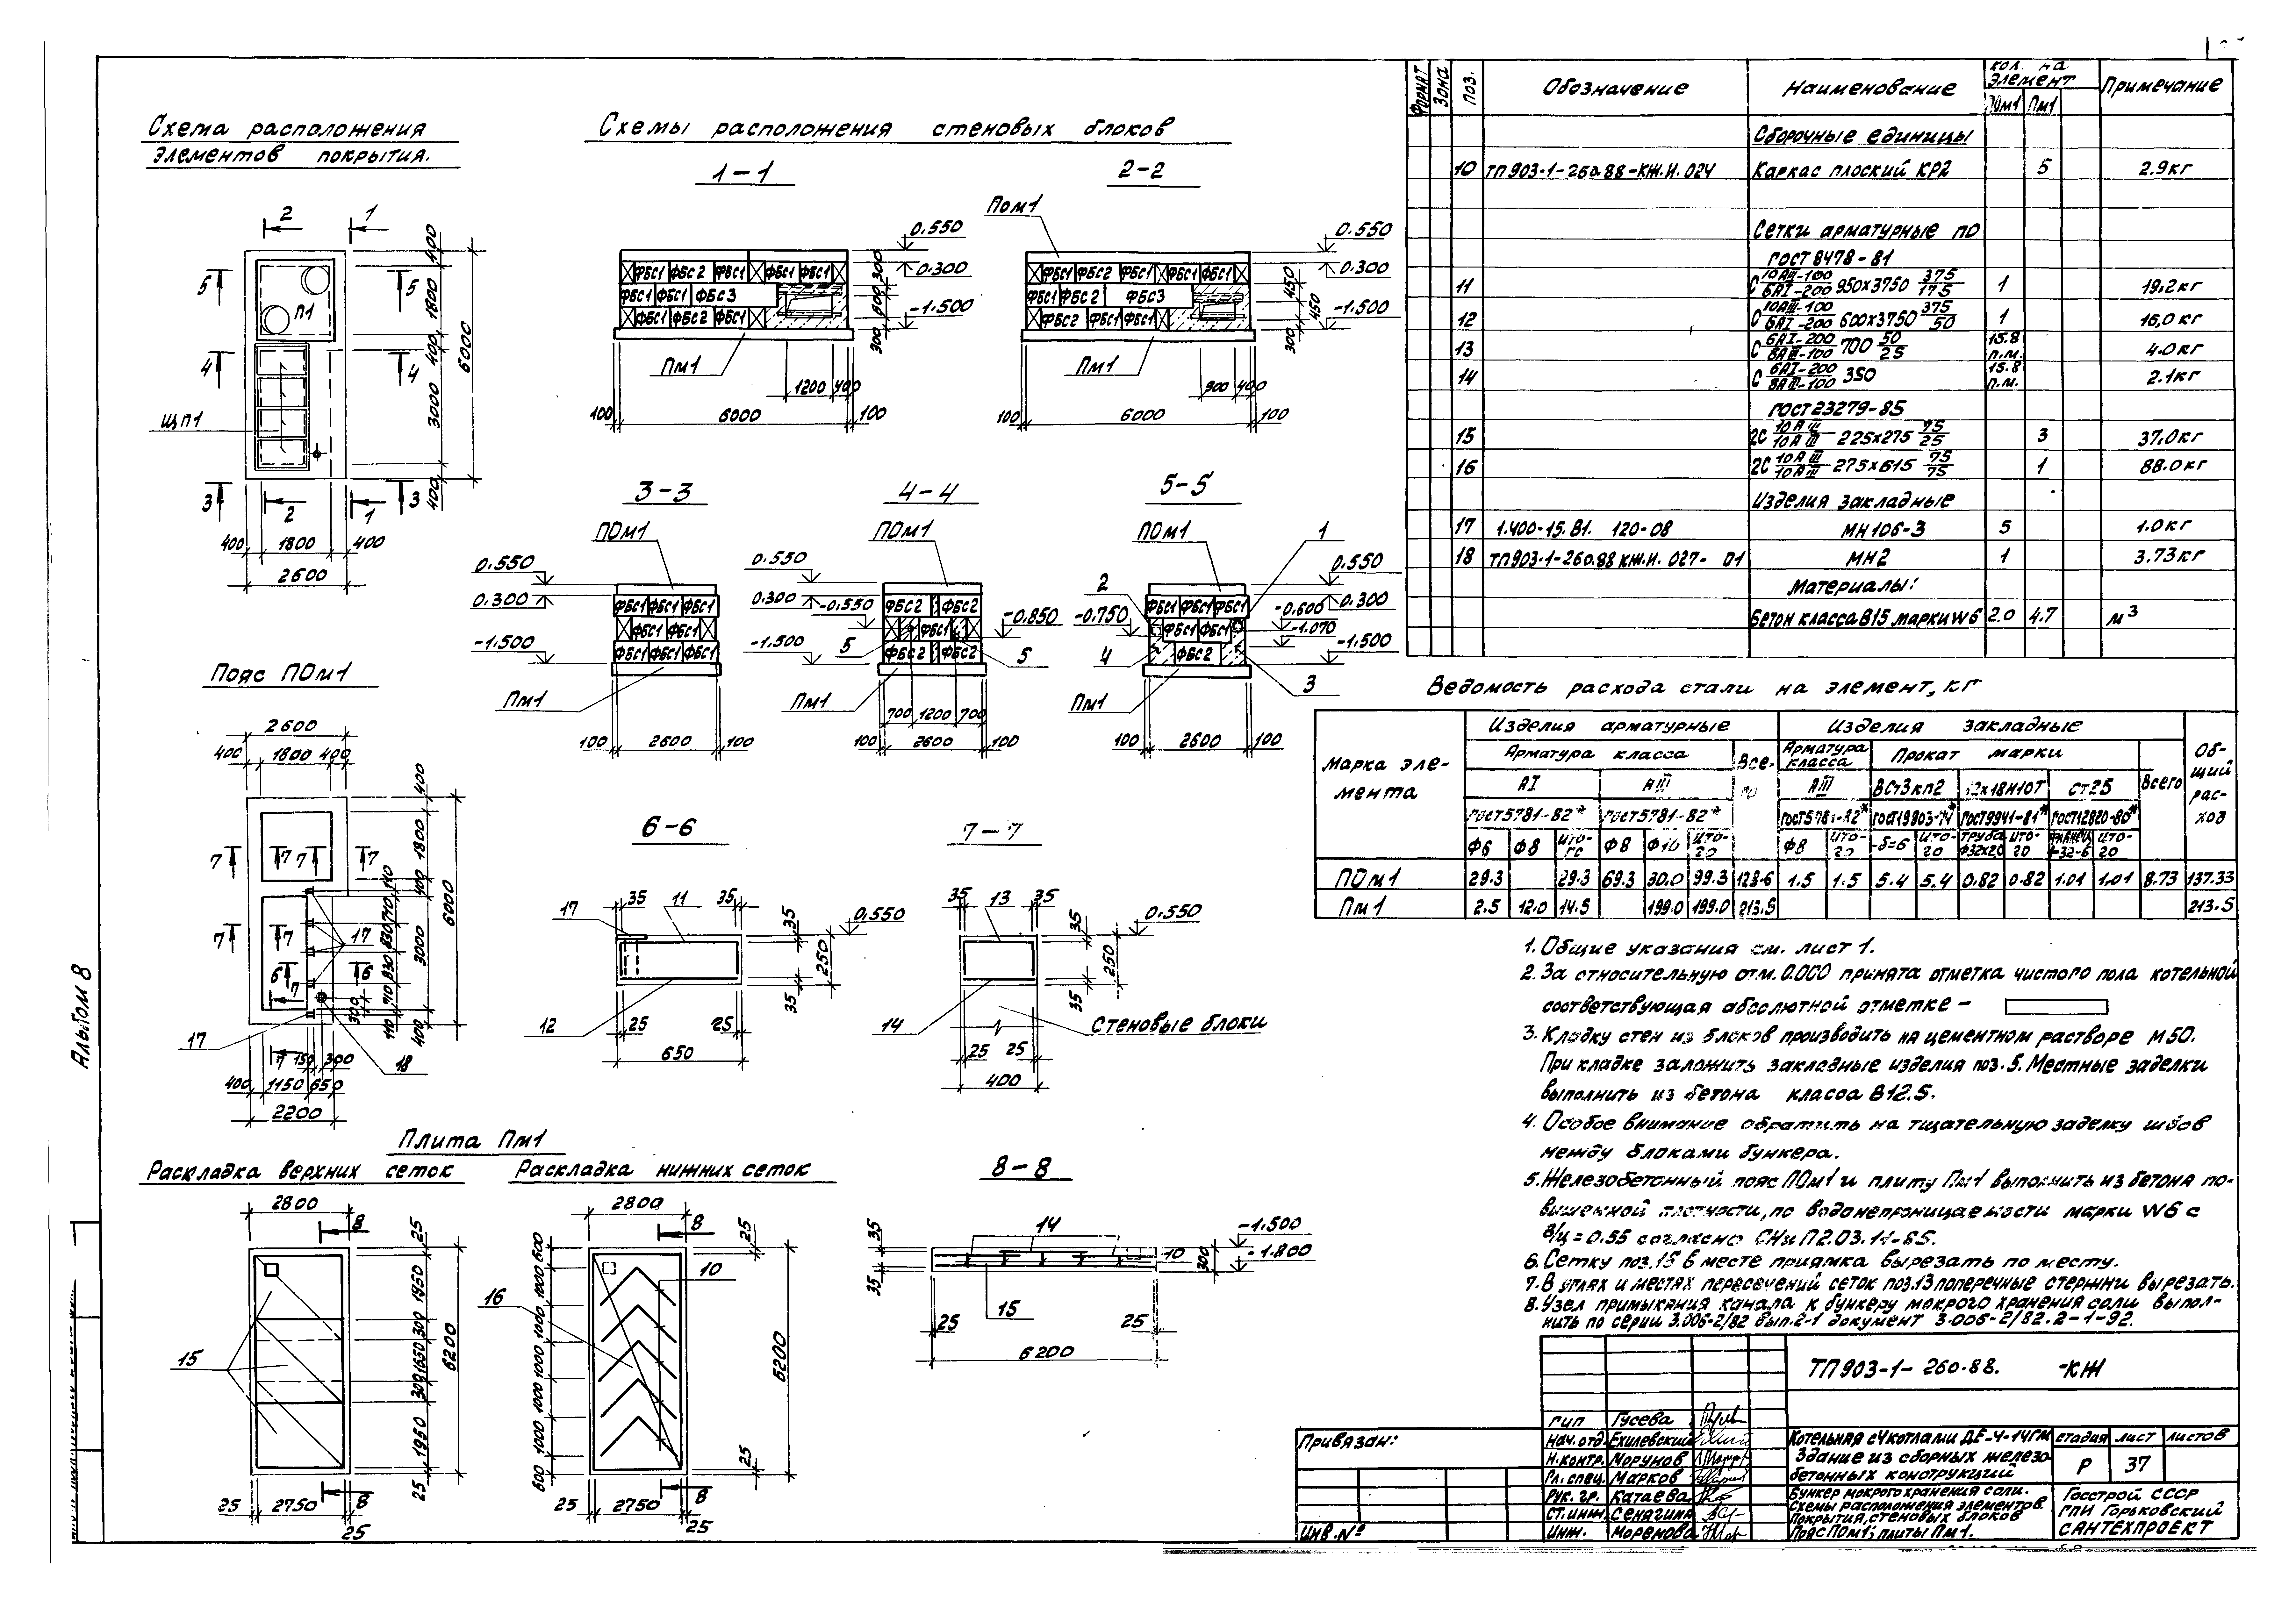 Схема расположения
элементов покрытия.
2 1
5 5
П1
4 4
ЩП1
3 3
2 1
400 1800 400 3000 400
6000
400 1800 400
2600
Схемы расположения стеновых блоков
1-1
0.550
0.300
-1.500
ФБС1 ФБС2 ФБС1 ФБС1 ФБС1
ФБС1 ФБС1 ФБС3
ФБС1 ФБС2 ФБС1
Пм1
300 600 300
1200 400
100 6000 100
2-2
ПОм1
0.550
0.300
-1.500
ФБС1 ФБС2 ФБС1 ФБС1 ФБС1
ФБС1 ФБС2 ФБС3
ФБС2 ФБС1 ФБС1
Пм1
450 450 300
900 400
100 6000 100
3-3
ПОм1
0.550
0.300
-1.500
ФБС1 ФБС1 ФБС1
ФБС1 ФБС1
ФБС1 ФБС1 ФБС1
Пм1
100 2600 100
4-4
ПОм1
0.550
0.300 -0.550
-0.850
-1.500
ФБС2 ФБС2
ФБС1
ФБС2 ФБС2
5 5
Пм1
700 1200 700
100 2600 100
5-5
ПОм1
1
2
0.550
0.300
-0.750 -0.600
-1.070
-1.500
ФБС1 ФБС1 ФБС1
ФБС1 ФБС1
ФБС2
4
3
Пм1
100 2600 100
Пояс ПОм1
2600
400 1800 400
7 7 7 7
7 7 17
6 6
7
17
18
7 150 300
400 1150 650
2200
400 1800 400 3000 400
6000
110 710 830 830 710 110
300
6-6
35 11 35
17
0.550
35 250 35
12
25 25
650
7-7
35 13 35
0.550
35 250 35
14
Стеновые блоки
25 25
400
Плита Пм1
Раскладка верхних сеток
2800
8
25 1950 300 1650 300 1950 25
6200
15
8
25 2750
25
Раскладка нижних сеток
2800
8
600 1000 1000 1000 1000 1000 600
25
10
16
6200
25
8
25 2750
25
8-8
14
10
35
35
15
-1.500
-1.800
300
25 25
6200
Формат Зона Поз. Обозначение Наименование Кол. на элемент ПОм1 Пм1 Примечание
Сборочные единицы
10 ТП903-1-260.88-КЖ.И.024 Каркас плоский КР2 5 2.9кг
Сетки арматурные по
ГОСТ 8478-81
11 С 10АIII-100/6АI-200 950х3750 375/175 1 19.2кг
12 С 10АIII-100/6АI-200 600х3750 375/50 1 16,0кг
13 С 6АI-200/8АIII-100 700 50/25 15.8 п.м. 4.0кг
14 С 6АI-200/8АIII-100 350 15.8 п.м. 2.1кг
ГОСТ 23279-85
15 2С 10АIII/10АIII 225х275 75/25 3 37.0кг
16 2С 10АIII/10АIII 275х615 75/75 1 88.0кг
Изделия закладные
17 1.400-15.В1. 120-08 МН106-3 5 1.0кг
18 ТП903-1-260.88 КЖ.И.027-01 МН2 1 3.73кг
Материалы:
Бетон класса В15 марки W6 2.0 4.7 м³
Ведомость расхода стали на элемент, кг
Марка элемента Изделия арматурные Изделия закладные Общий расход
Арматура класса Всего Арматура класса Прокат марки Всего
АI АIII АIII ВСт3кп2 12х18Н10Т Ст25
ГОСТ5781-82* ГОСТ5781-82* ГОСТ5781-82* ГОСТ19903-74* ГОСТ9941-81* ГОСТ12820-80*
Ф6 Ф8 Итого Ф8 Ф10 Итого Ф8 Итого -δ=6 Итого Труба Ф32х20 Итого Фланец 1-32-6 Итого
ПОм1 29.3 29.3 69.3 30.0 99.3 128.6 1.5 1.5 5.4 5.4 0.82 0.82 1.01 1.01 8.73 137.33
Пм1 2.5 12.0 14.5 199.0 199.0 213.5 213.5
1. Общие указания см. лист 1.
2. За относительную отм. 0.000 принята отметка чистого пола котельной
соответствующая абсолютной отметке –
3. Кладку стен из блоков производить на цементном растворе М50.
При кладке заложить закладные изделия поз. 5. Местные заделки
выполнить из бетона класса В12.5.
4. Особое внимание обратить на тщательную заделку швов
между блоками бункера.
5. Железобетонный пояс ПОм1 и плиту Пм1 выполнить из бетона по-
вышенной плотности, по водонепроницаемости марки W6 с
В/Ц=0.55 согласно СНиП 2.03.11-85.
6. Сетку поз. 15 в месте приямка вырезать по месту.
7. В углах и местах пересечений сеток поз.13 поперечные стержни вырезать.
8. Узел примыкания канала к бункеру мокрого хранения соли выпол-
нить по серии 3.006-2/82 вып.2-1 документ 3.006-2/82.2-1-92.
ТП903-1-260.88. -КЖ
Привязан:
Инв. №
ГИП Гусева
Нач.отд. Ехилевский
Н.контр. Норунов
Гл. спец. Марков
Рук. гр. Катаева
Ст.инж. Сенягина
Инж. Моренова
Котельная с 4 котлами ДЕ-4-14ГМ
Здание из сборных железо-
бетонных конструкций
Стадия Лист Листов
Р 37
Бункер мокрого хранения соли.
Схемы расположения элементов
покрытия, стеновых блоков
Пояс ПОм1; плиты Пм1.
Госстрой СССР
ГПИ Горьковский
САНТЕХПРОЕКТ
Альбом 8